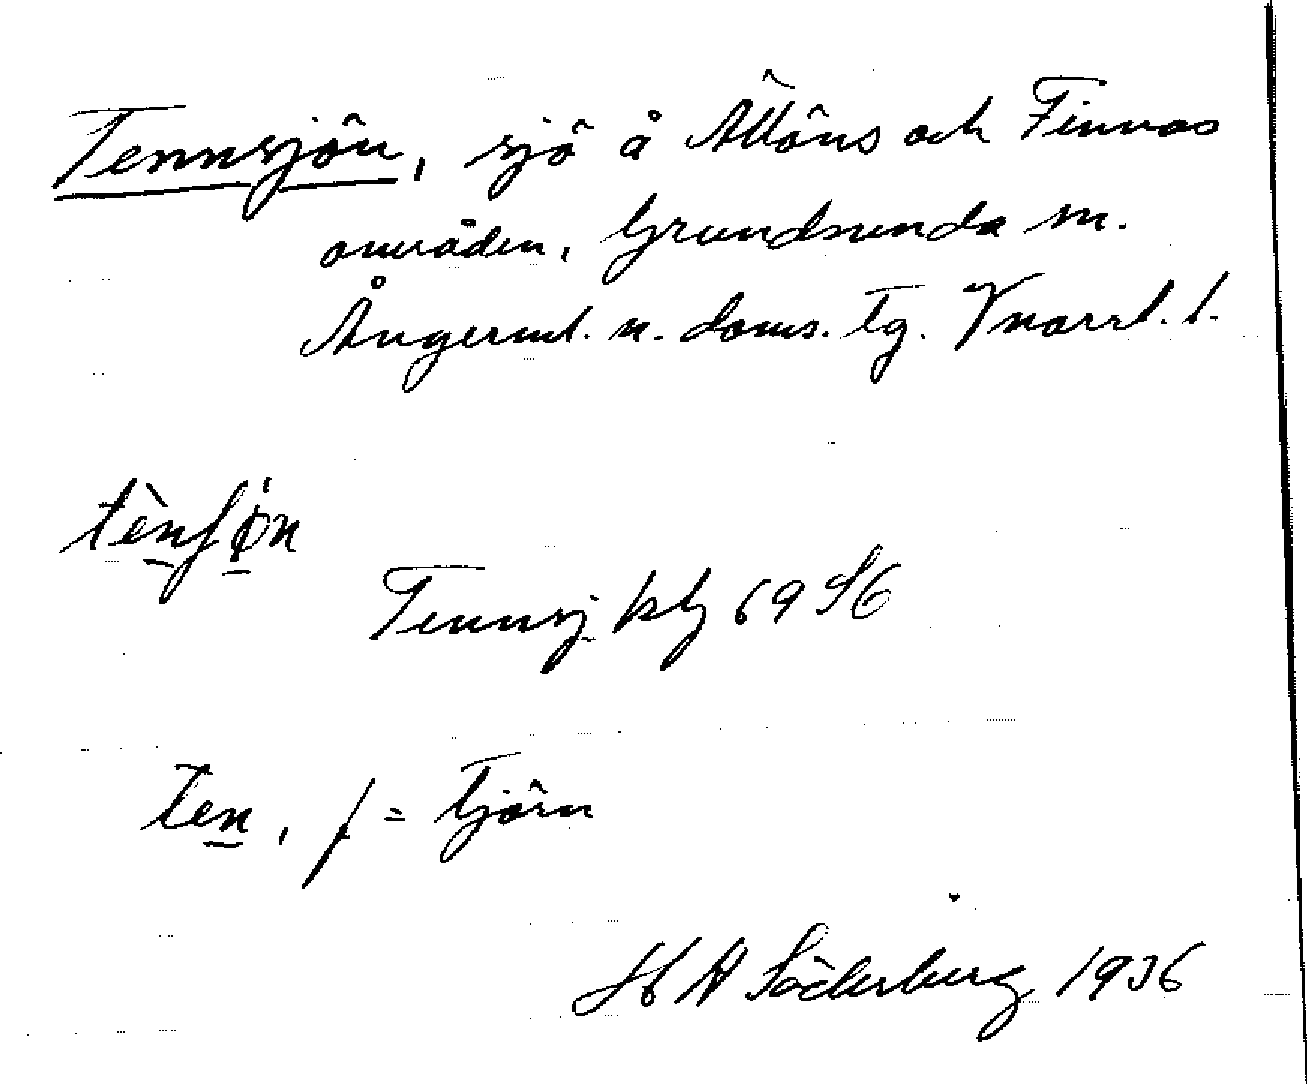 Tennsjön, sjö å Ällöns och Finnas
områden, Grundsunda sn.
Ångerml. n. doms. tg. Vnorrl. l.
tènʃøn
Tennsj kbl 69 S6
ten, f = tjärn
H A Söderberg 1936